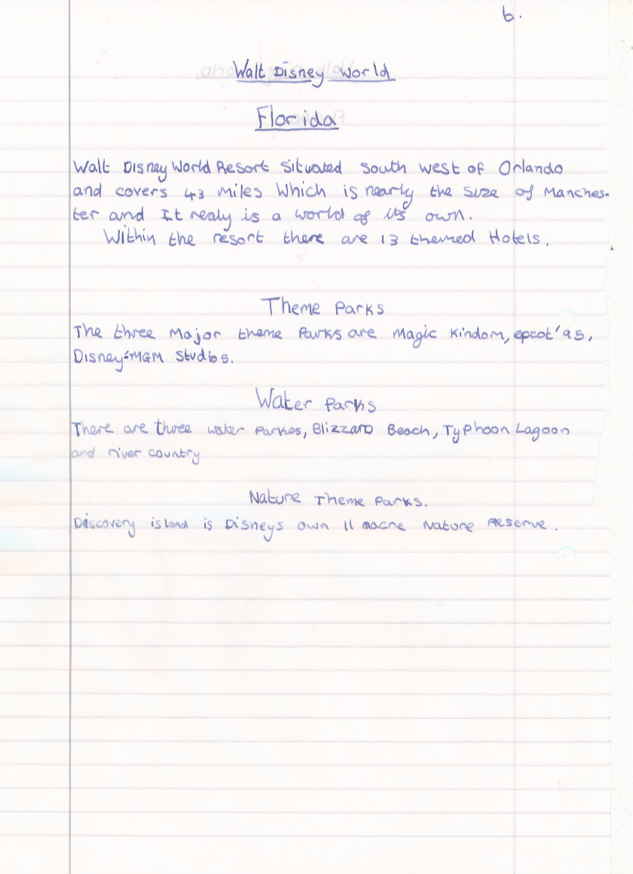 6.
Walt Disney World
Florida
Walt Disney World Resort Situated South West of Orlando
and covers 43 miles Which is nearly the Size of Manches-
ter and It realy is a world of its own.
Within the resort there are 13 themed Hotels.
Theme Parks
The three Major theme Parks are Magic Kindom, epcot '95,
Disney-MGM Studios.
Water Parks
There are three water Parkes, Blizzard Beach, Typhoon Lagoon
and river country
Nature Theme Parks.
Discovery island is Disneys own 11 aacre Nature Reserve.